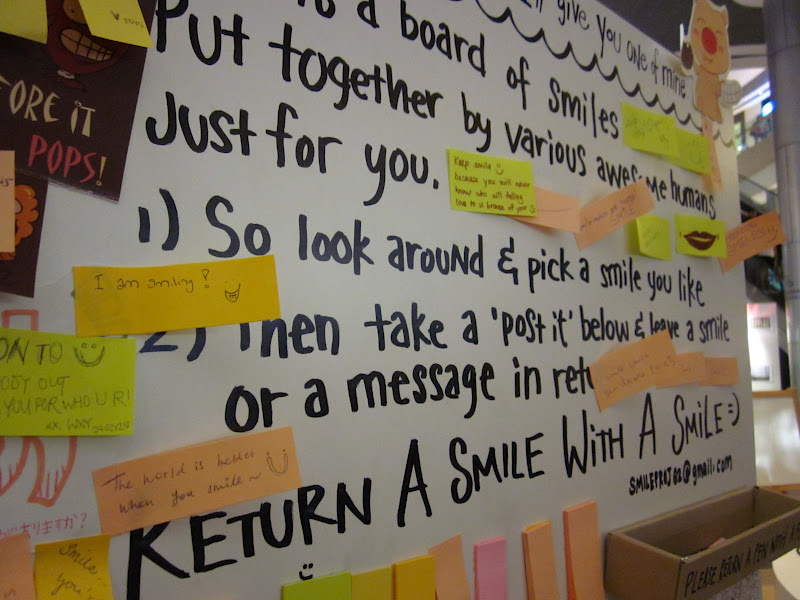 give you one of mine
a board of smiles
Put together by various awesome humans
Just for you.
FORE IT
POPS!
Keep smile
because you will never
know who will falling
love to u because of your
1) So look around & pick a smile you like
I am smiling!
2) Then take a 'post it' below & leave a smile
or a message in
ON TO
BODY OUT
YOU FOR WHO U R!
xx, WXY
The world is better
when you smile ~
RETURN A SMILE WITH A SMILE =)
smileproj02@gmail.com
がありますか?
Smile
you're
PLEASE RETURN A PEN WITH A